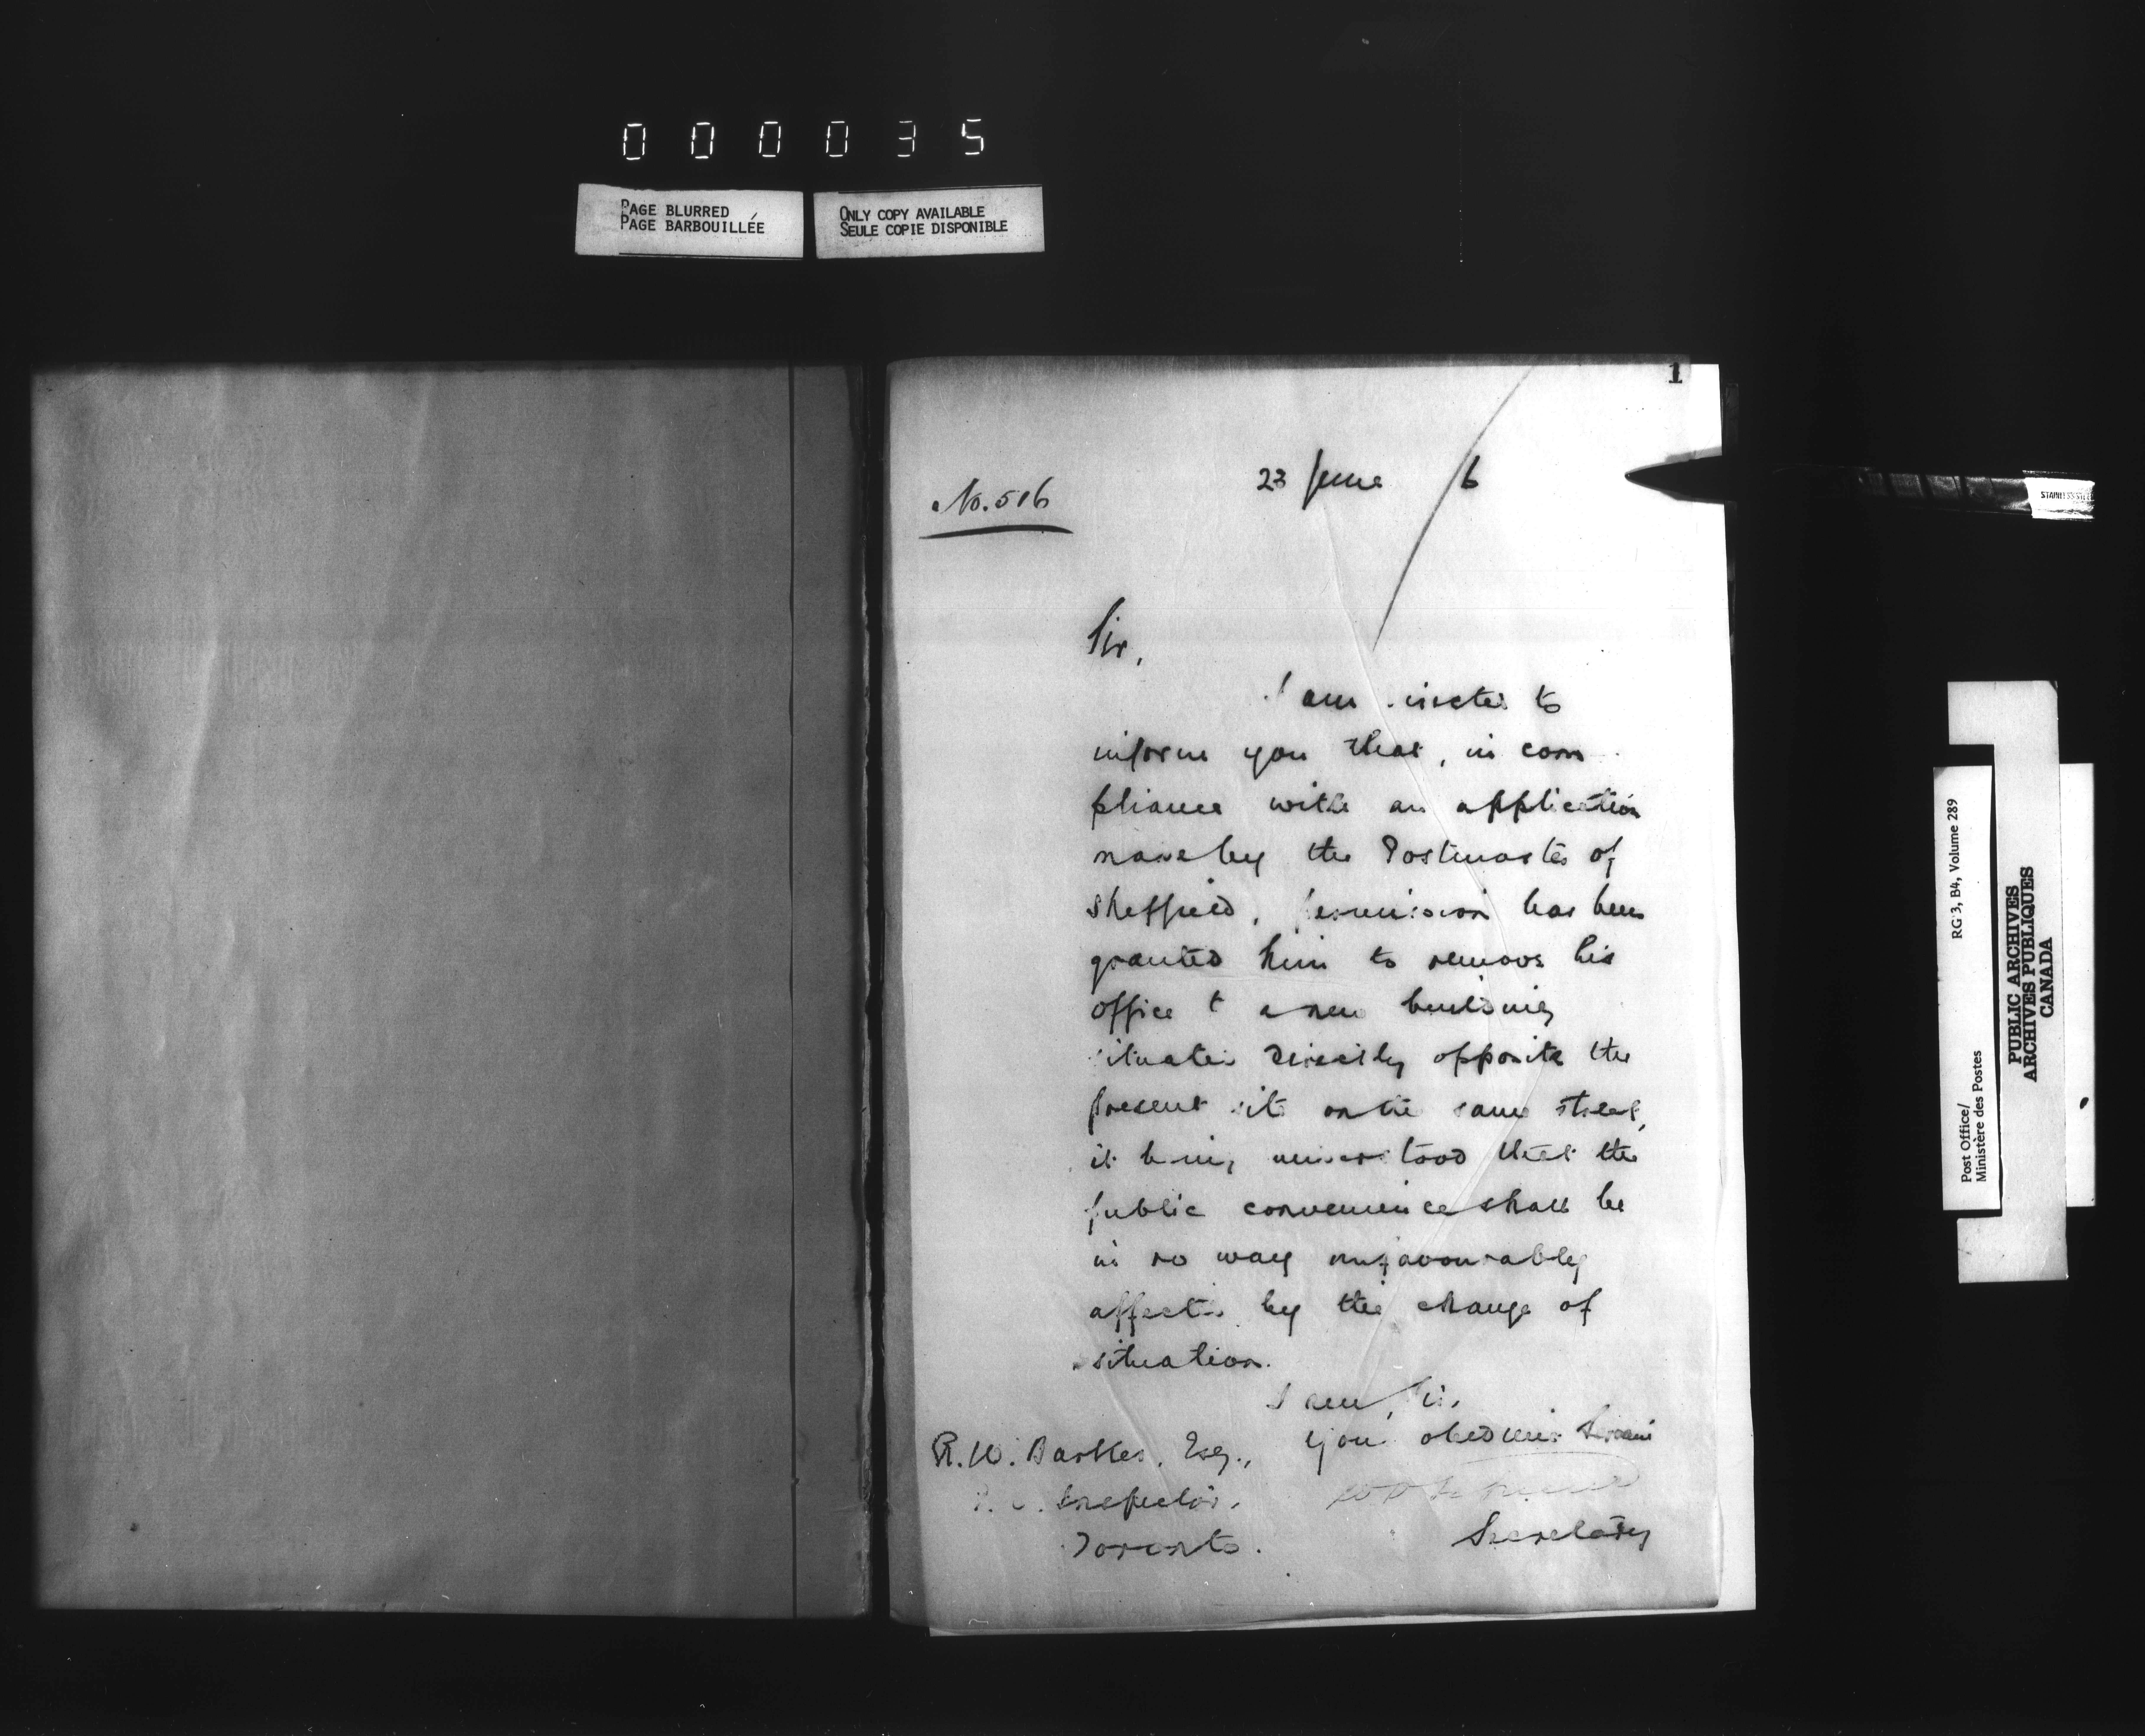 000035
PAGE BLURRED
PAGE BARBOUILLÉE
ONLY COPY AVAILABLE
SEULE COPIE DISPONIBLE
1
No. 516
23 June 6
Sir,
I am directed to
inform you that, in com
pliance with an application
made by the Postmaster of
Sheffield, permission has been
granted him to remove his
office to a new building
situated directly opposite the
present site on the same street,
it being understood that the
public convenience shall be
in no way unfavourably
affected by the change of
situation.
I am, Sir,
Your obedient Servant
Secretary
R. W. Barker, Esq.,
P. O. Inspector,
Toronto.
STAINLESS STEEL
RG 3, B4, Volume 289
Post Office/
Ministère des Postes
PUBLIC ARCHIVES
ARCHIVES PUBLIQUES
CANADA